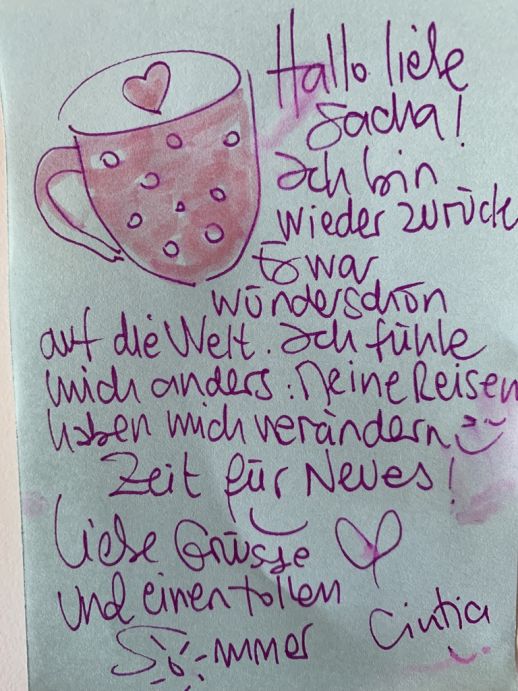 Hallo liebe
Sacha!
Ich bin
wieder zurück
Es war
wünderschön
auf die Welt. Ich fühle
mich anders. Meine Reisen
haben mich verändern
Zeit für Neues!
Liebe Grüsse
und einen tollen
Sommer Cintia